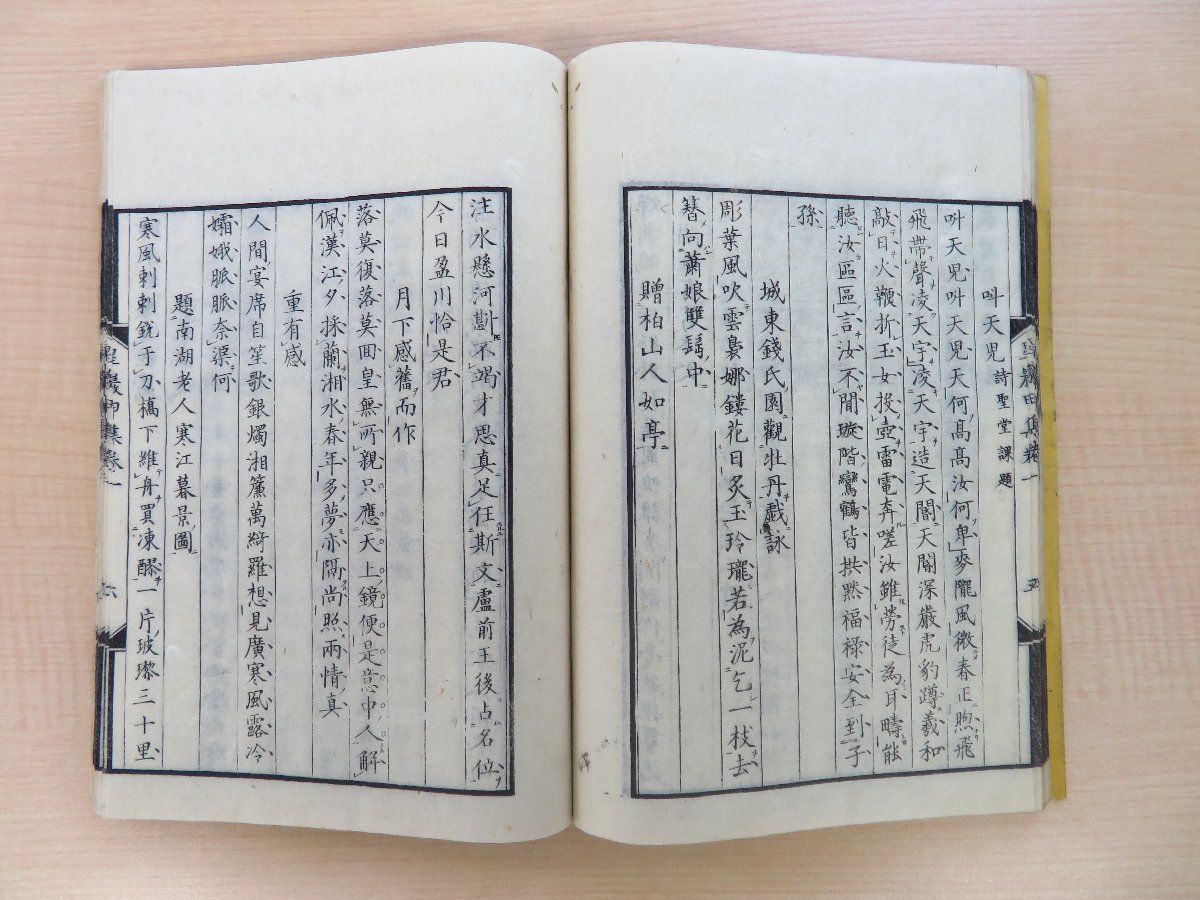 叫天児 詩聖堂課題
叫天児叫天児天何高高汝何卑麥隴風微春正煦飛
飛帶聲凌天宇凌天宇造天閽天閽深嚴虎豹蹲羲和
敲日火鞭折玉女投壺雷電奔嗟汝雖勞徒為耳疇能
聽汝區區言汝不聞璇階鸞鶴皆拱默福禄安全到子
孫
城東錢氏園觀牡丹戯詠
彫葉風吹雲裊娜鏤花日炙玉玲瓏若為泥乞一枝去
簪向蕭娘雙髻中
贈柏山人如亭
注水懸河斟不竭才思真足任斯文盧前王後占名位
今日盈川恰是君
月下感舊而作
落莫復落莫面皇無所親只應天上鏡便是意中人解
佩漢江夕採蘭湘水春年多夢亦隔尚照兩情真
重有感
人間宴席自笙歌銀燭湘簾萬綺羅想見廣寒風露冷
孀娥脈脈奈渠何
題南湖老人寒江暮景圖
寒風刺刺銳于刀槁下維舟買凍醪一片玻瓈三十里
集卷一
五
集卷一
六